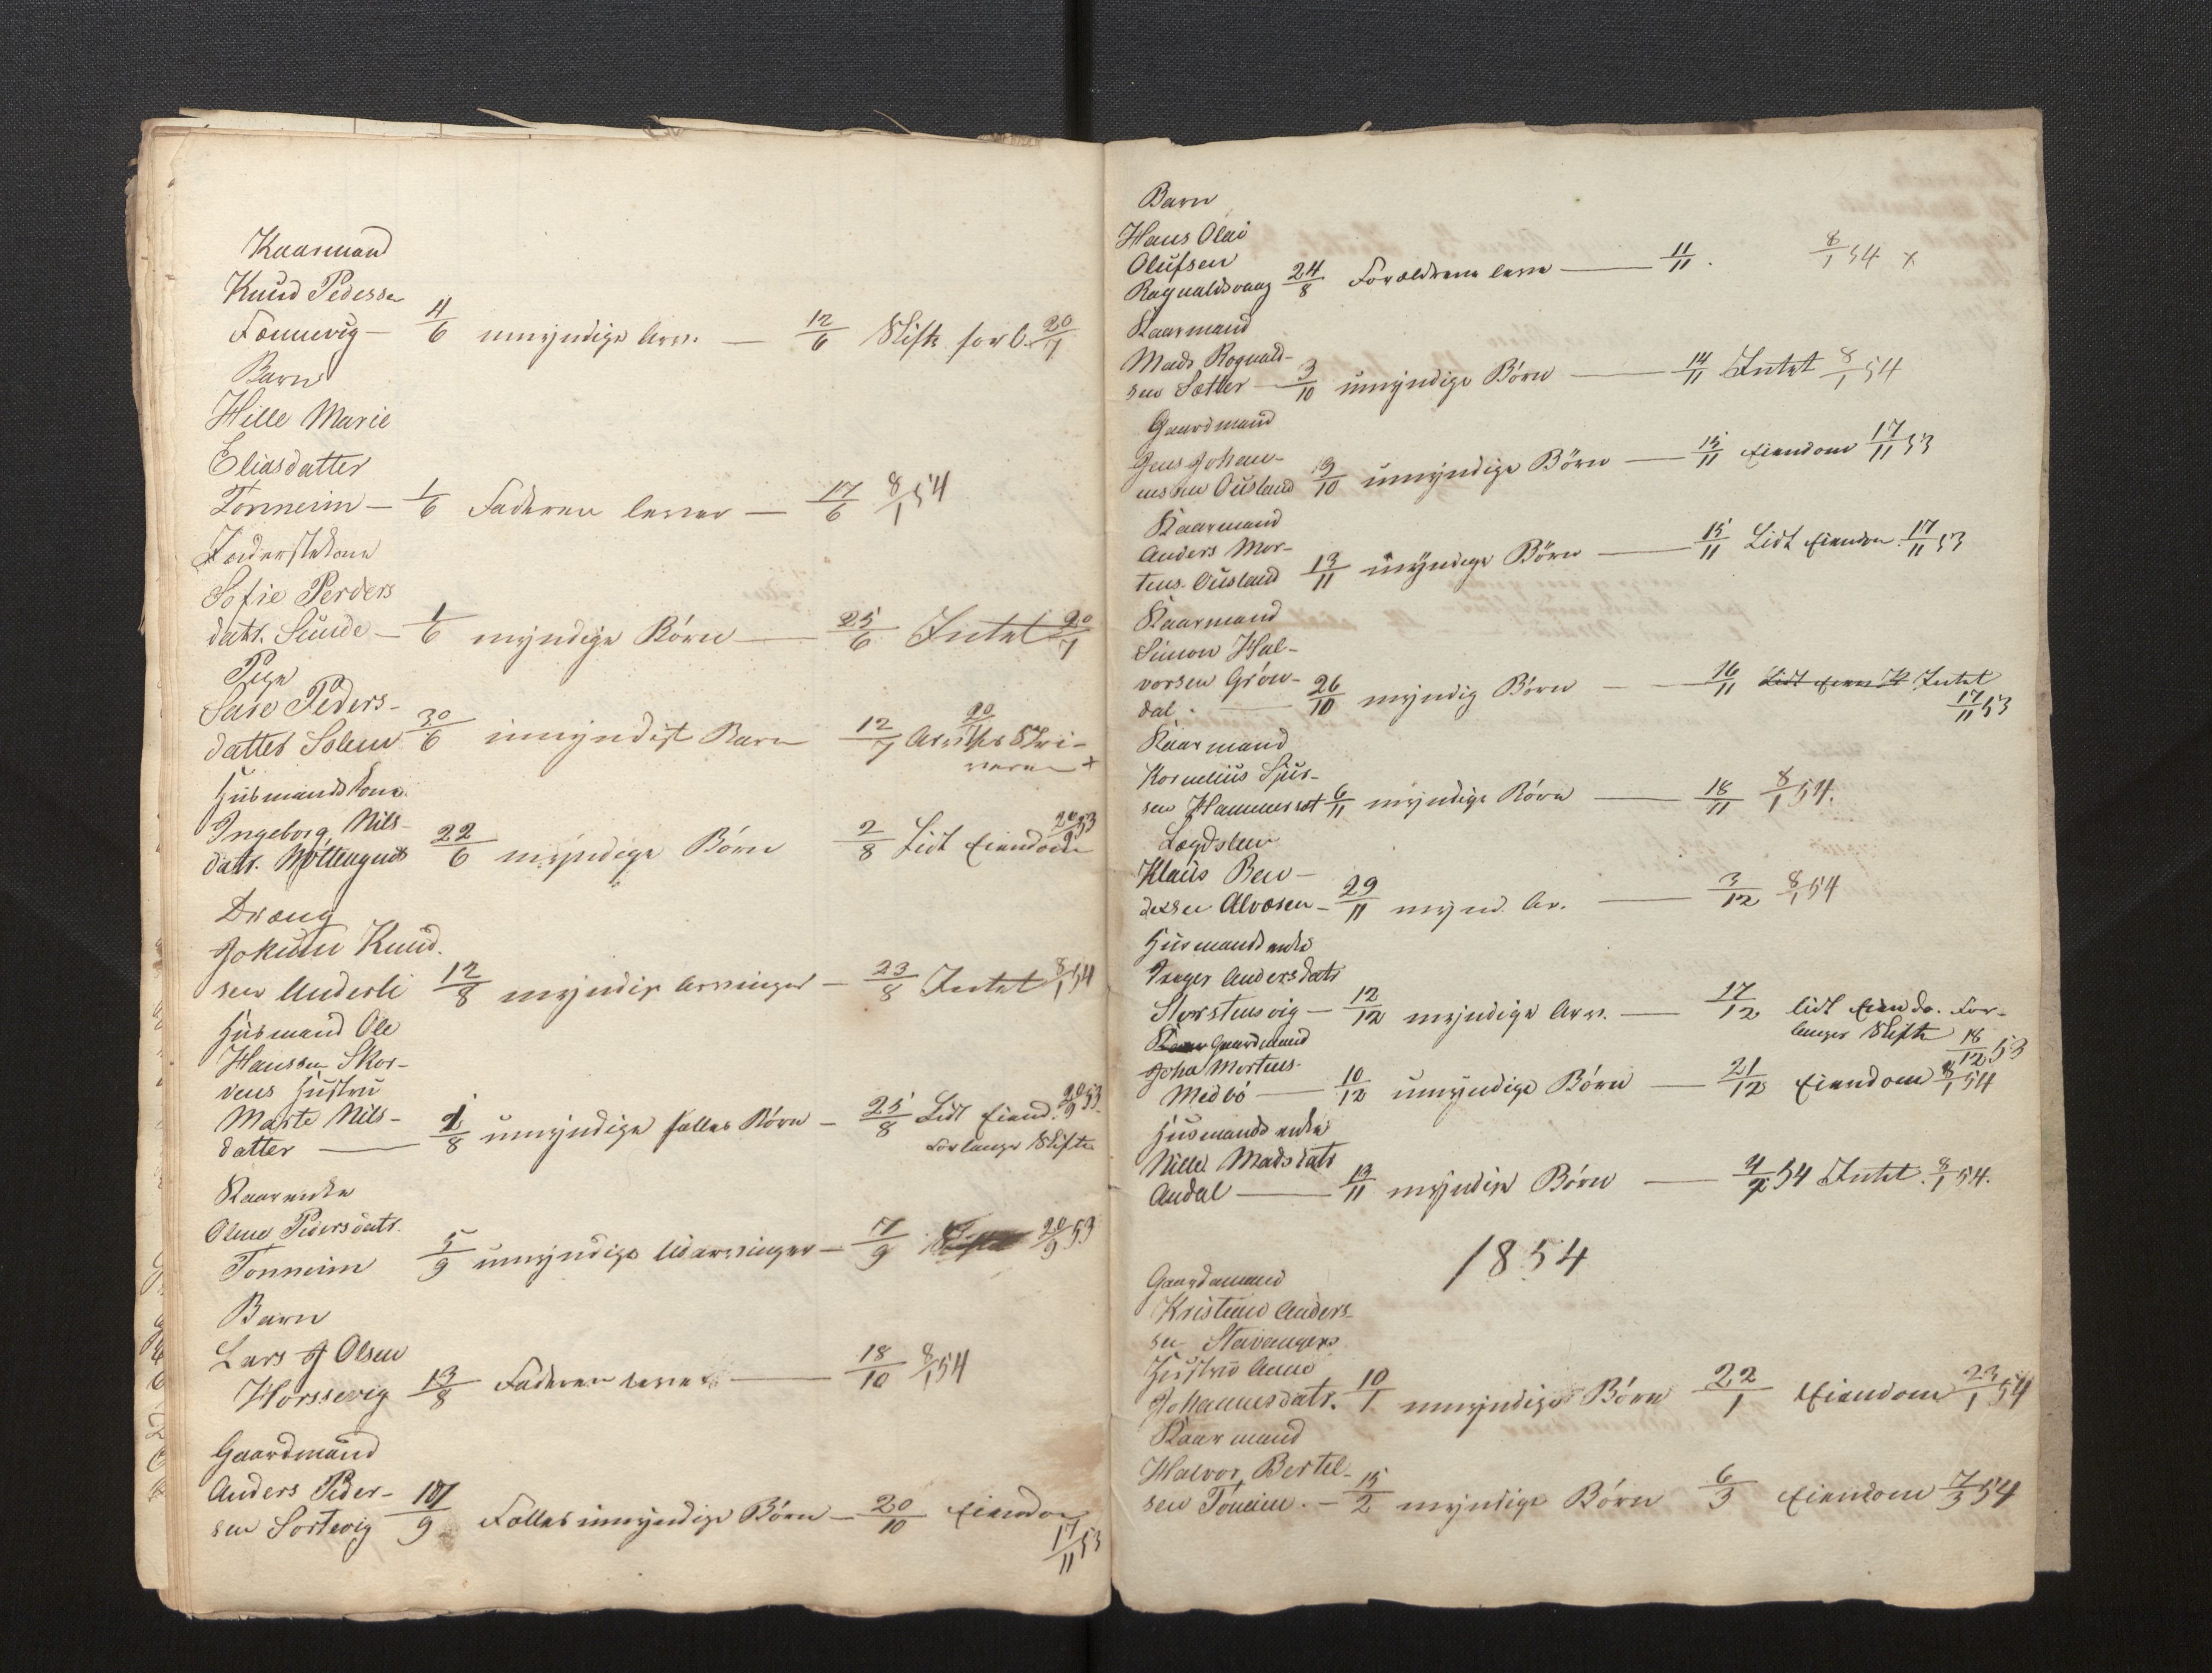 Kaarmand
Knud Pedersen
Fænnevig — 4/6 umyndige Arv. — 12/6 Skifte forl. 20/7
Barn
Hille Marie
Eliasdatter
Tonneim — 1/6 Faderen lever — 17/6 8/1 54
Sofie Perders
datr. Sunde — 1/6 myndige Börn — 25/6 Intet 20/7
Pige
Datter Solem 30/6 umyndigt Barn 12/7 20/7
Husmandskone
Ingeborg Nils-
datr. 22/6 myndige Börn 2/8 Lidt Eiendom 20/9 53
Dræng
Jokum Knud-
sen Underli 12/8 myndige Arvinger — 23/8 Intet 8/1 54
Husmand Ole
Hanssen Skor-
vens Hustru
Marte Nils-
datter — 1/8 umyndige fælles Börn — 25/8 Lidt Eiend. 20/9 53
Forlange Skifte
Kaarenke
Oline Pedersdatr.
Tonneim 5/9 umyndige Udarvinger — 7/9 20/9 53
Barn
Lars J Olsen
Horssevig 13/8 Faderen lever — 18/10 8/1 54
Gaardmand
Anders Peder-
sen Sortevig /9 Fælles umyndige Börn — 20/10 Eiendom
17/11 53
Barn
Hans Olai
Olufsen
Ragnaldsvaag 24/8 Forældrene leve — 11/11. 8/1 54 x
Kaarmand
Mads Rognald-
sen Sætter — 3/10 umyndige Börn — 14/11 Intet 8/1 54
Gaardmand
Jens Johan-
nessen Ousland /10 umyndige Börn — 15/11 Eiendom 17/11 53
Kaarmand
Anders Mor-
tens. Ousland 13/11 myndige Börn — 15/11 Lidt Eiendom 17/11 53
Kaarmand
Simon Hal-
vorsen Grön-
dal. — 26/10 myndig Börn — 16/11 Intet
17/11 53
Kaarmand
Kornelius Sjur-
sen Hammerset 6/11 myndige Börn — 18/11 8/1 54.
Lægdslem
Klaus Ben-
dixsen Alvæsen — 29/11 mynd. Ar. — 3/12 8/1 54
Husmandsenke
Inger Andersdatr
Storstensvig — 12/12 myndige Arv. — 17/12 lidt Eiendo. For-
langer Skifte 18/12 53
Gaardmand
Joha Mortens-
Medbö — 10/12 umyndige Börn — 21/12 Eiendom 8/1 54
Husmandsenke
Nille Madsdatr
Andal — 13/11 myndige Börn — 54 Intet. 8/1 54.
1854
Gaardmand
Kristian Anders-
sen Stavangers
Hustru Anne
Johannesdatr. 10/1 umyndige Börn 22/1 Eiendom 23/1 54
Kaarmand
Halvor Bertel-
sen Töneim. — 15/2 myndige Börn 6/3 Eiendom 7/3 54